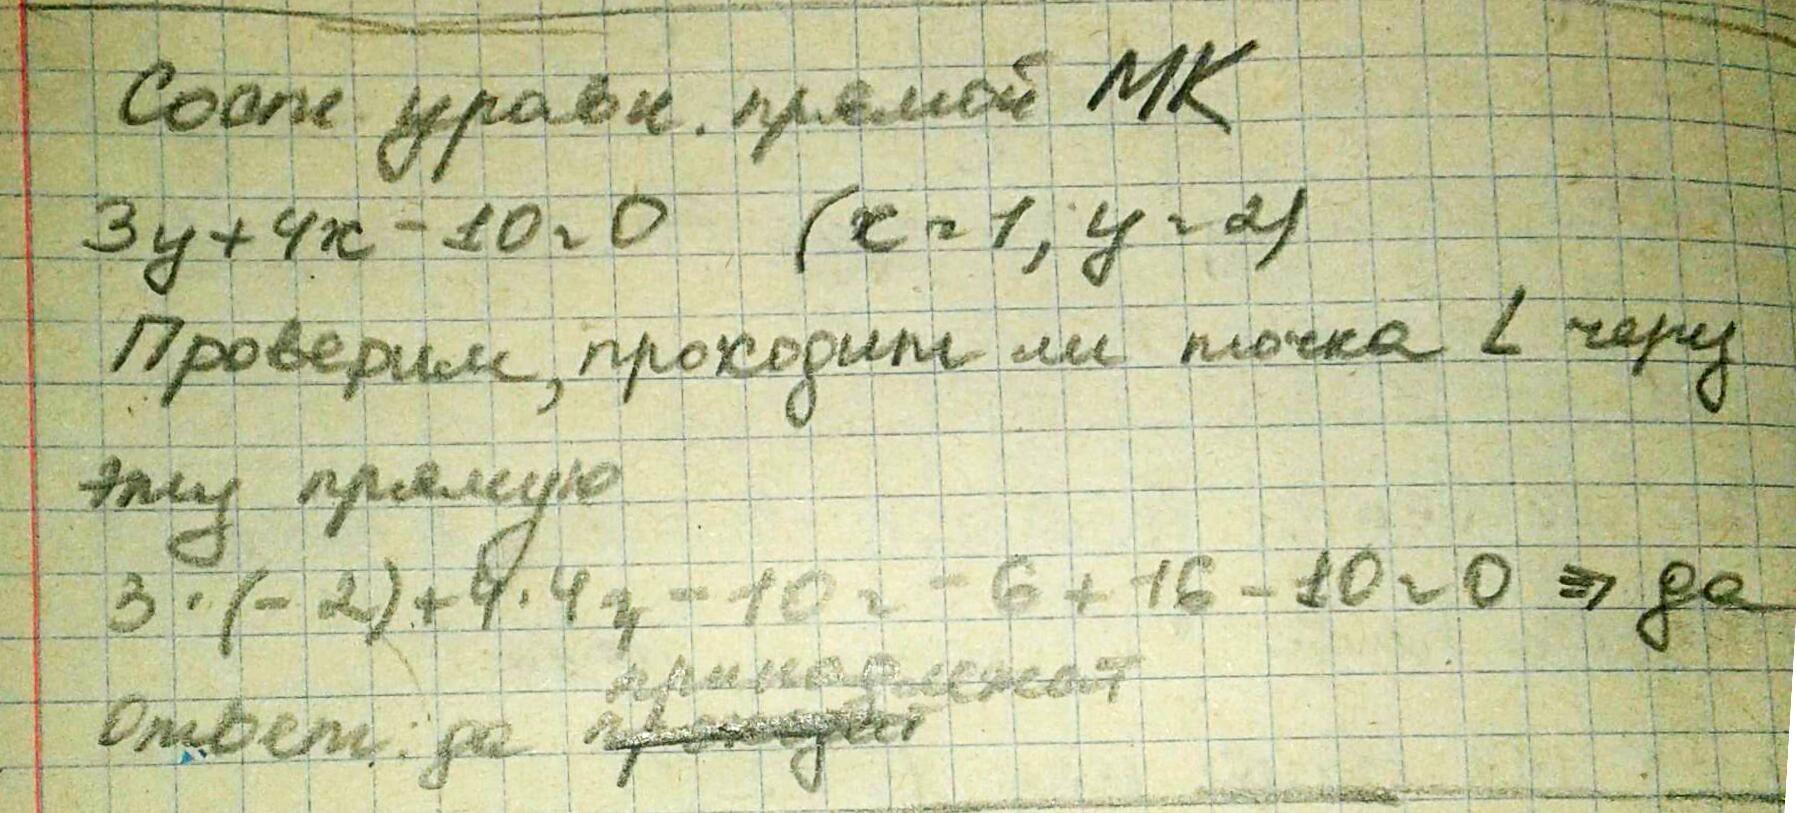 Сост уравн. прямой МК
3y+4x-10=0 (x=1, y=2)
Проверим, проходит ли точка L через
эту прямую
3·(-2)+4·4-10=-6+16-10=0 => да
принадлежат
Ответ: да проходит